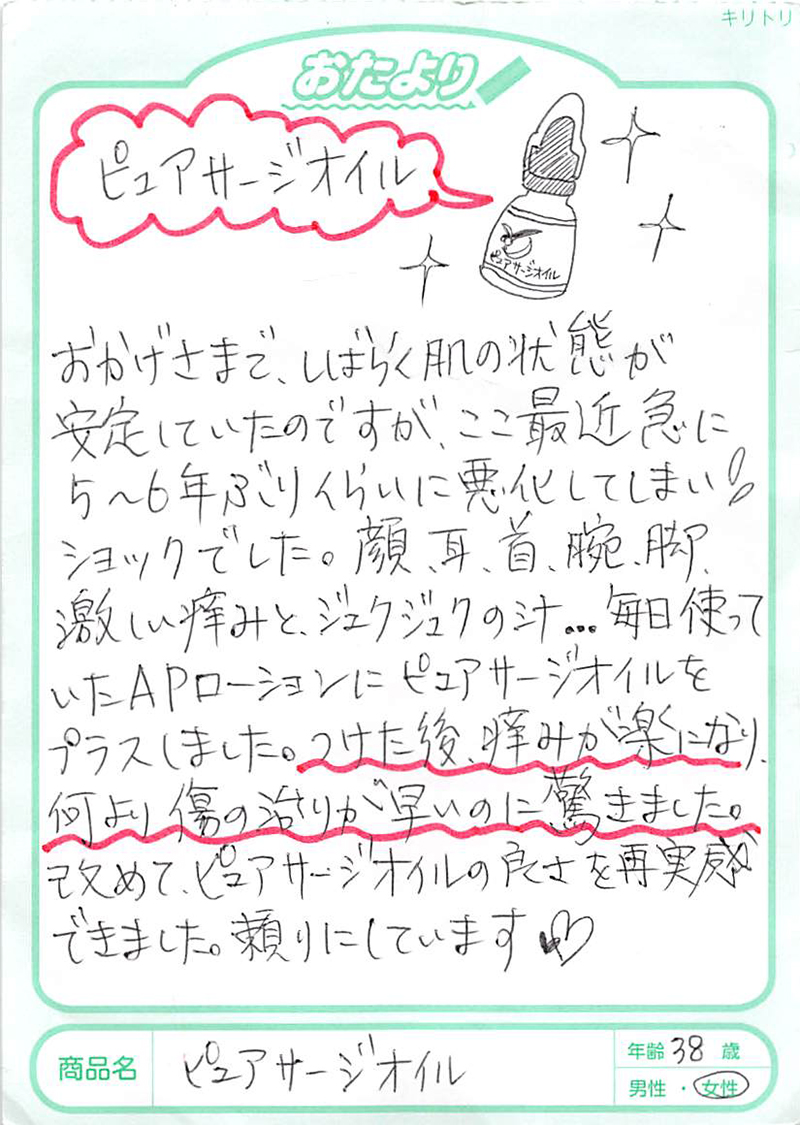 キリトリ
おたより
ピュアサージオイル
ピュアサージオイル
おかげさまで、しばらく肌の状態が
安定していたのですが、ここ最近急に
5〜6年ぶりくらいに悪化してしまい!!
ショックでした。顔、耳、首、腕、脚、
激しい痒みと、ジュクジュクの汁...毎日使って
いたAPローションにピュアサージオイルを
プラスしました。つけた後、痒みが楽になり、
何より傷の治りが早いのに驚きました。
改めて、ピュアサージオイルの良さを再実感
できました。頼りにしています♡
商品名 ピュアサージオイル
年齢 38 歳
男性 ・ 女性